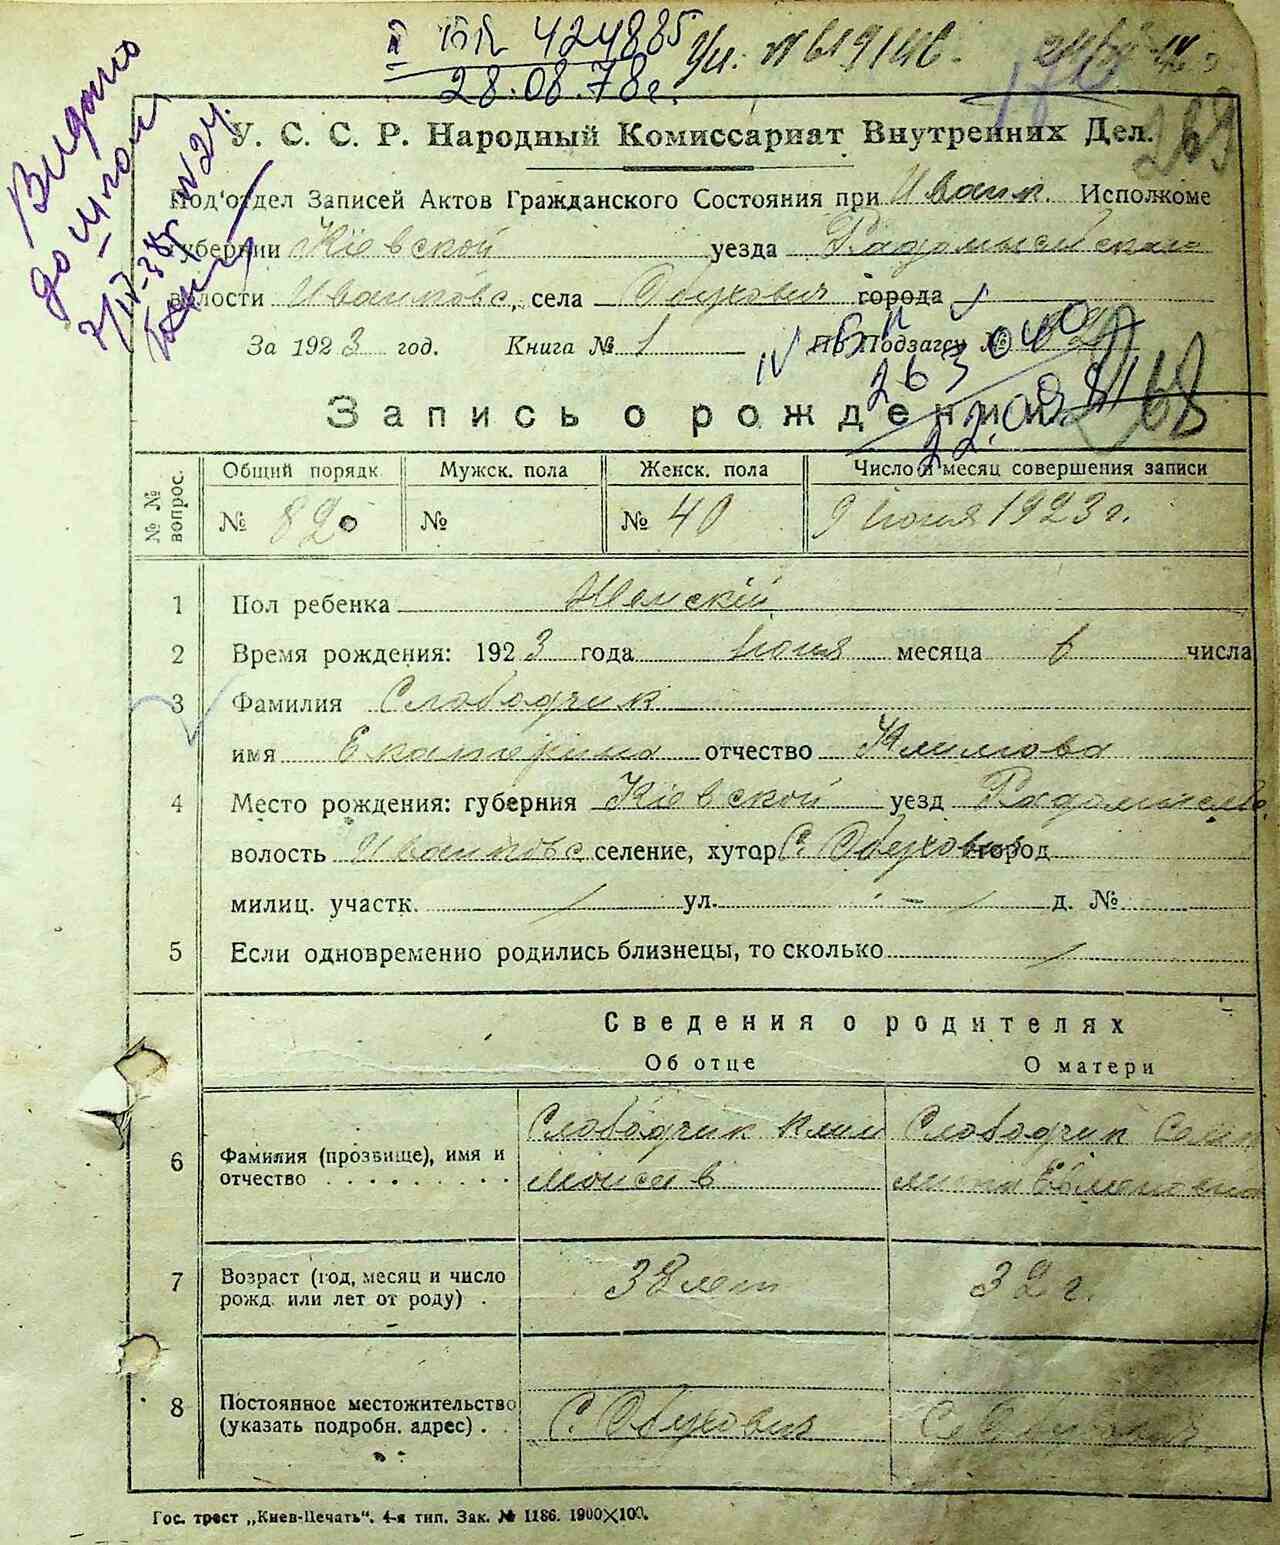 II БП 424885 Ул. № 619146.
28.08.78г.
Видано
до школи
У. С. С. Р. Народный Комиссариат Внутренних Дел.
269
Под'отдел Записей Актов Гражданского Состояния при Иванк. Исполкоме
губернии Кіевской уезда Радомысльскаго
волости Иванковс, села Обухович города
За 1923 год. Книга № 1 По Подзагсу № 82
IV БП 263040
22.09.81
268
Запись о рождении
№ № вопрос.
Общий порядк Мужск. пола Женск. пола Число и месяц совершения записи
№ 820 № № 40 9 Июня 1923 г.
1 Пол ребенка Женскій
2 Время рождения: 1923 года Июня месяца 6 числа
3 Фамилия Слободчик
имя Екатерина отчество Климова
4 Место рождения: губерния Кіевской уезд Радомысльс
волость Иванковс селение, хутор С. Обухович город
милиц. участк. / ул. - / д. №
5 Если одновременно родились близнецы, то сколько /
Сведения о родителях
Об отце О матери
6 Фамилия (прозвище), имя и Слободчик Клим Слободчик
отчество Моисеев Евменовна
7 Возраст (год, месяц и число 38 лет 32 г.
рожд. или лет от роду) .
8 Постоянное местожительство С. Обухович С. Обухович
(указать подробн. адрес) . .
Гос. трест „Киев-Печать“. 4-я тип. Зак. № 1186. 1900×100.